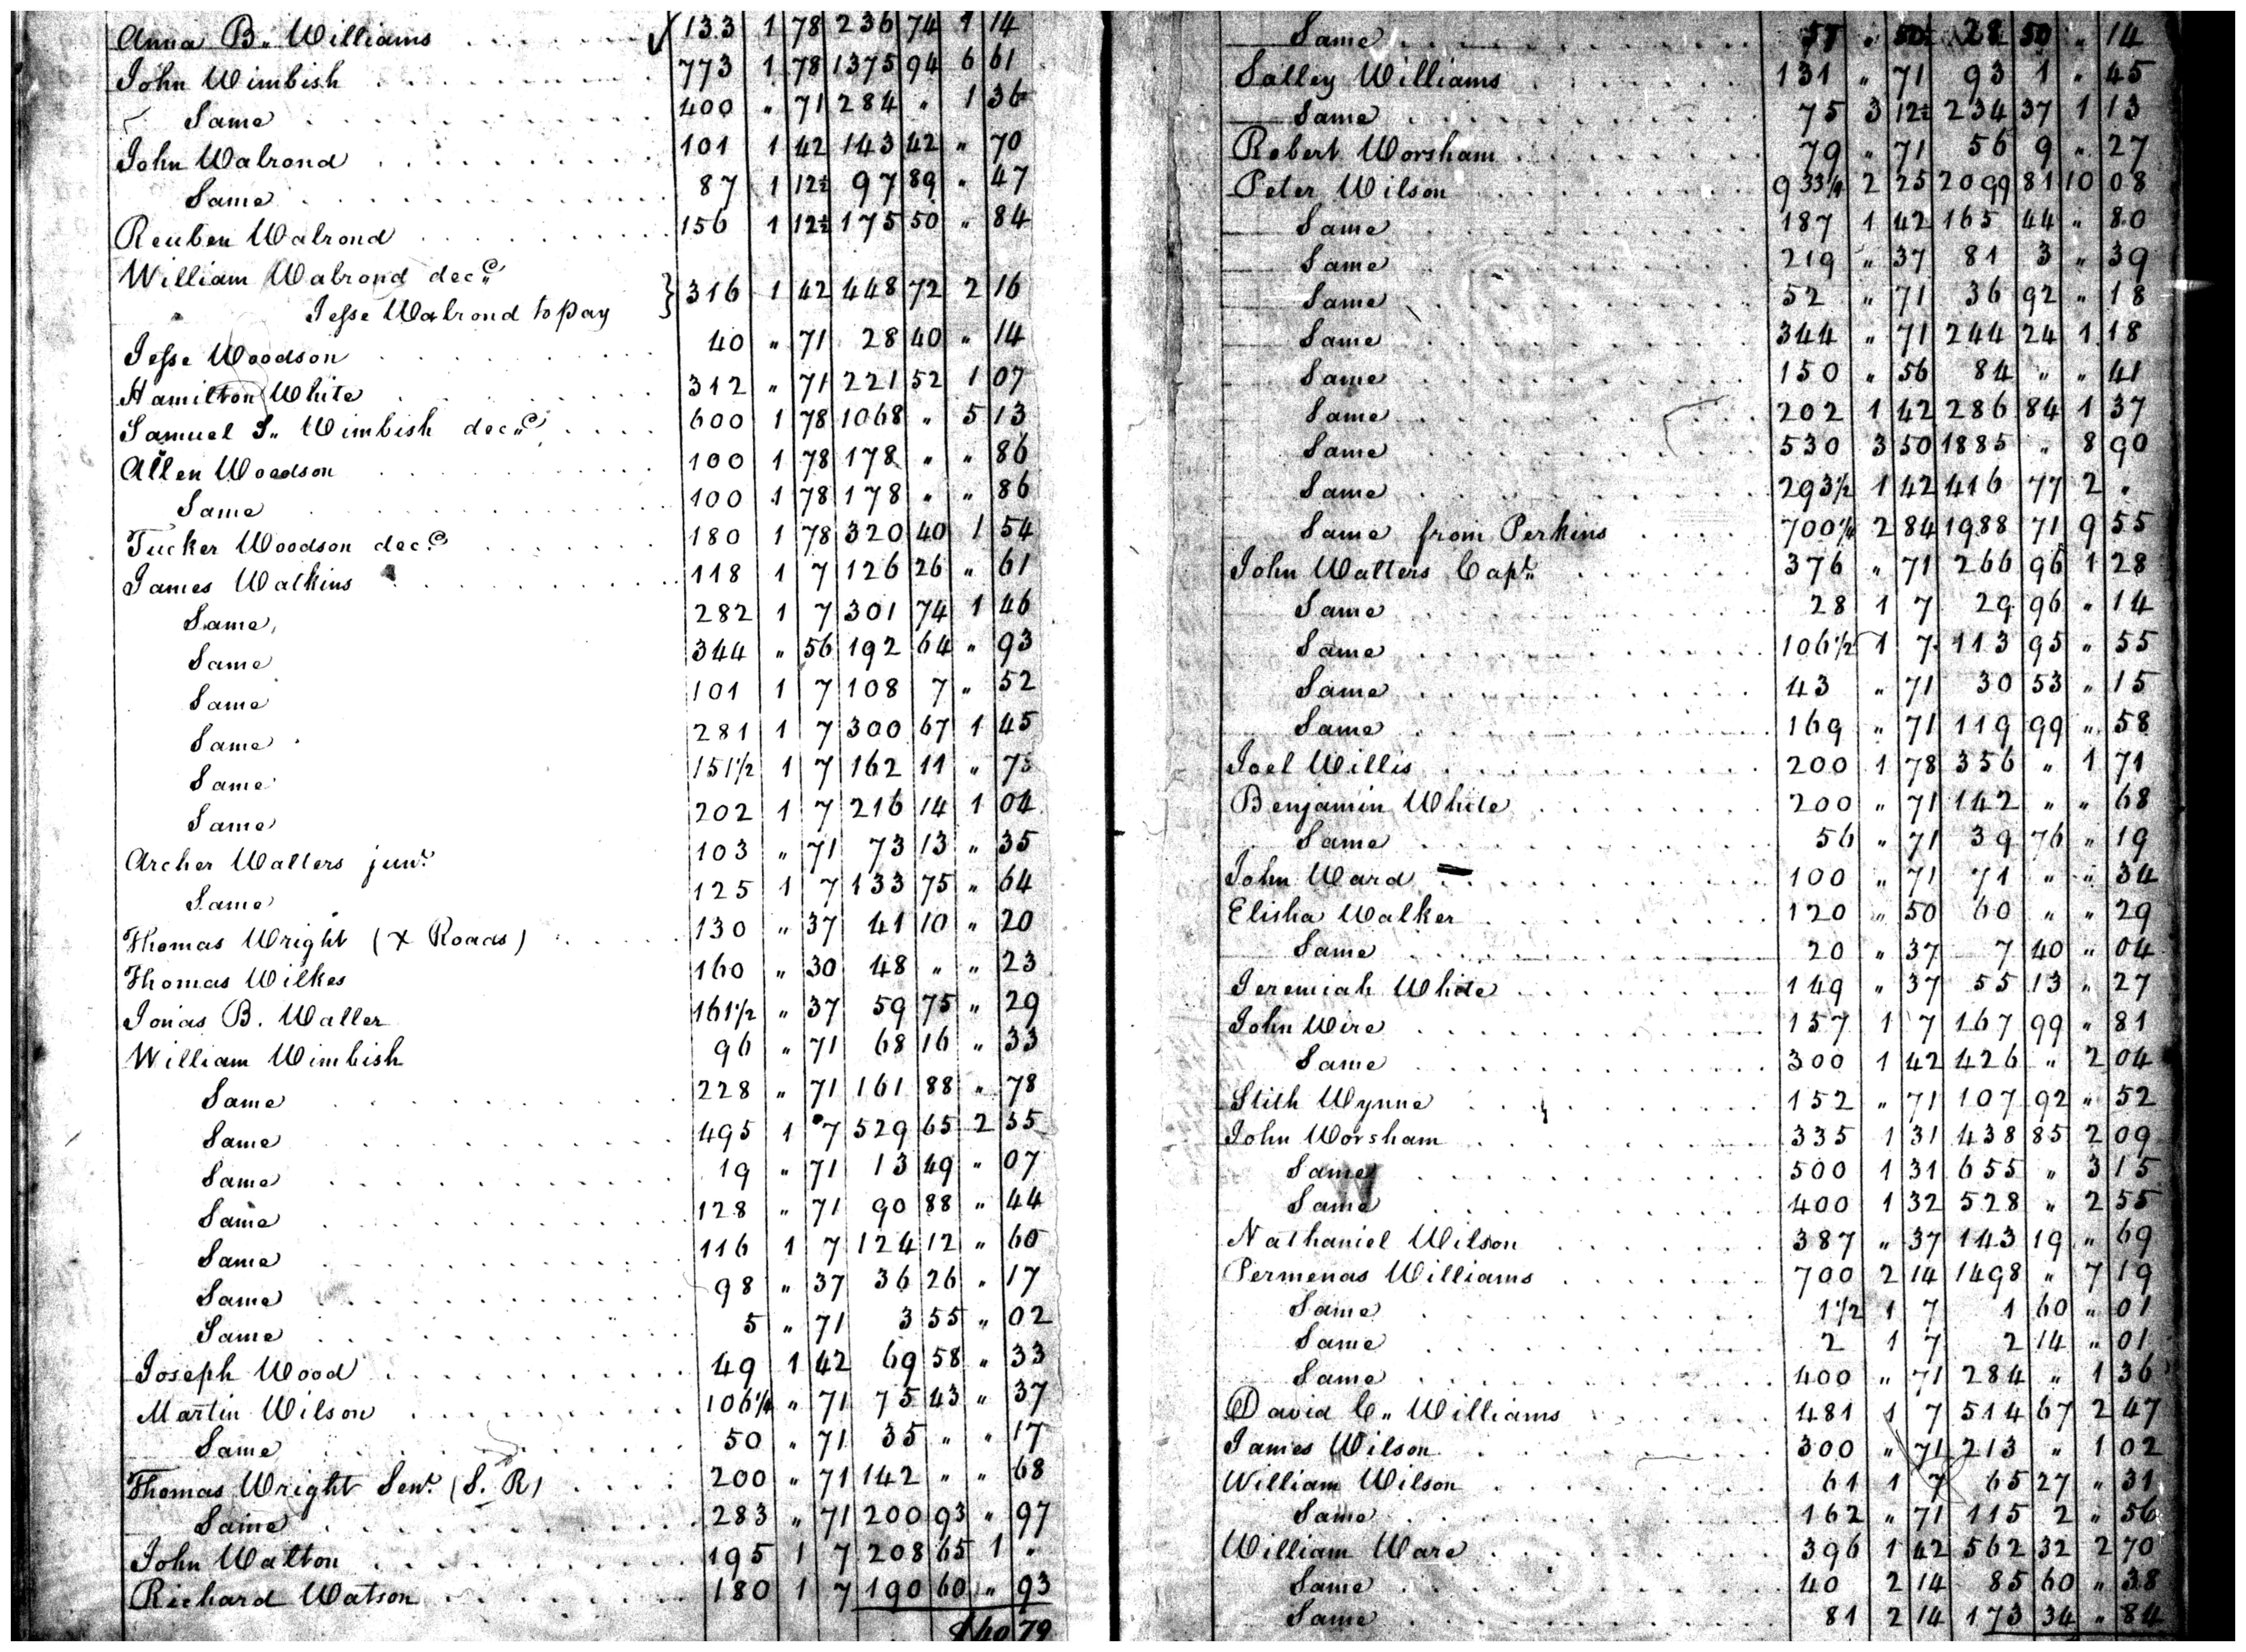 Anna B. Williams 133 1 78 236 74 1 14
John Wimbish 773 1 78 1375 94 6 61
Same 400 " 71 284 " 1 36
John Walrond 101 1 42 143 42 " 70
Same 87 1 12½ 97 89 " 47
Reuben Walrond 156 1 12½ 175 50 " 84
William Walrond decd
Jesse Walrond to pay } 316 1 42 448 72 2 16
Jesse Woodson 40 " 71 28 40 " 14
Hamilton White 312 " 71 221 52 1 07
Samuel S. Wimbish decd 600 1 78 1068 " 5 13
Allen Woodson 100 1 78 178 " " 86
Same 100 1 78 178 " " 86
Tucker Woodson decd 180 1 78 320 40 1 54
James Watkins 118 1 7 126 26 " 61
Same 282 1 7 301 74 1 46
Same 344 " 56 192 64 " 93
Same 101 1 7 108 7 " 52
Same 281 1 7 300 67 1 45
Same 151½ 1 7 162 11 "
Same 202 1 7 216 14 1 04
Archer Walters junr 103 " 71 73 13 " 35
Same 125 1 7 133 75 " 64
Thomas Wright (X Roads) 130 " 37 41 10 " 20
Thomas Wilkes 160 " 30 48 " " 23
Jonas B. Waller 161½ " 37 59 75 " 29
William Wimbish 96 " 71 68 16 " 33
Same 228 " 71 161 88 " 78
Same 495 1 7 529 65 2 35
Same 19 " 71 13 49 " 07
Same 128 " 71 90 88 " 44
Same 116 1 7 124 12 " 60
Same 98 " 37 36 26 " 17
Same 5 " 71 3 55 " 02
Joseph Wood 49 1 42 69 58 " 33
Martin Wilson 106¼ " 71 75 43 " 37
Same 50 " 71 35 " " 17
Thomas Wright Senr (S. R) 200 " 71 142 " " 68
Same 283 " 71 200 93 " 97
John Walton 195 1 7 208 65 1 "
Richard Watson 180 1 7 190 60 " 93
79
Same 57 " 50 28 50 " 14
Salley Williams 131 " 71 93 1 " 45
Same 75 3 12½ 234 37 1 13
Robert Worsham 79 " 71 56 9 " 27
Peter Wilson 933¼ 2 25 2099 81 10 08
Same 187 1 42 165 44 " 80
Same 219 " 37 81 3 " 39
Same 52 " 71 36 92 " 18
Same 344 " 71 244 24 1 18
Same 150 " 56 84 " " 41
Same 202 1 42 286 84 1 37
Same 530 3 50 1885 " 8 90
Same 293½ 1 42 416 77 2 "
Same from Perkins 700¼ 2 84 1988 71 9 55
John Walters Capt. 376 " 71 266 96 1 28
Same 28 1 7 29 96 " 14
Same 106½ 1 7 113 95 " 55
Same 43 " 71 30 53 " 15
Same 169 " 71 119 99 " 58
Joel Willis 200 1 78 356 " 1 71
Benjamin White 200 " 71 142 " " 68
Same 56 " 71 39 76 " 19
John Ward 100 " 71 71 " " 34
Elisha Walker 120 " 50 60 " " 29
Same 20 " 37 7 40 " 04
Jeremiah White 149 " 37 55 13 " 27
John Wire 157 1 7 167 99 " 81
Same 300 1 42 426 " 2 04
Stith Wynne 152 " 71 107 92 " 52
John Worsham 335 1 31 438 85 2 09
Same 500 1 31 655 " 3 15
Same 400 1 32 528 " 2 55
Nathaniel Wilson 387 " 37 143 19 " 69
Permenas Williams 700 2 14 1498 " 7 19
Same 1½ 1 7 1 60 " 01
Same 2 1 7 2 14 " 01
Same 400 " 71 284 " 1 36
David C. Williams 481 1 7 514 67 2 47
James Wilson 300 " 71 213 " 1 02
William Wilson 61 1 7 65 27 " 31
Same 162 " 71 115 2 " 56
William Ware 396 1 42 562 32 2 70
Same 40 2 14 85 60 " 38
Same 81 2 14 173 34 " 84